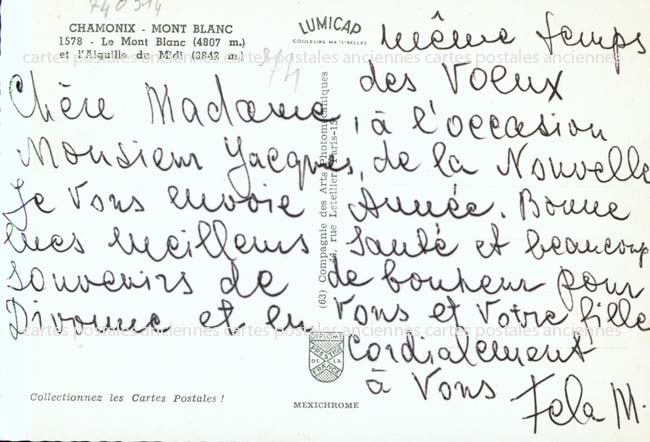 740914
CHAMONIX - MONT BLANC
1578 - Le Mont Blanc (4807 m.)
et l'Aiguille du Midi (3842 m)
LUMICAP
COULEURS NATURELLES
974
Chère Madame,
Monsieur Jacques,
Je vous envoie
mes meilleurs
souvenirs de
Divonne et en
même temps
des voeux
à l'occasion
de la Nouvelle
Année. Bonne
Santé et beaucoup
de bonheur pour
Vous et Votre fille
Cordialement
à Vous
Fela M.
(63) Compagnie des Arts Photomécaniques
44, rue Letellier, Paris-15
DIPLOME
PRESTIGE
DE LA
FRANCE
Collectionnez les Cartes Postales !
MEXICHROME
cartes postales anciennes cartes postales anciennes cartes postales anciennes
cartes postales anciennes cartes postales anciennes cartes postales anciennes